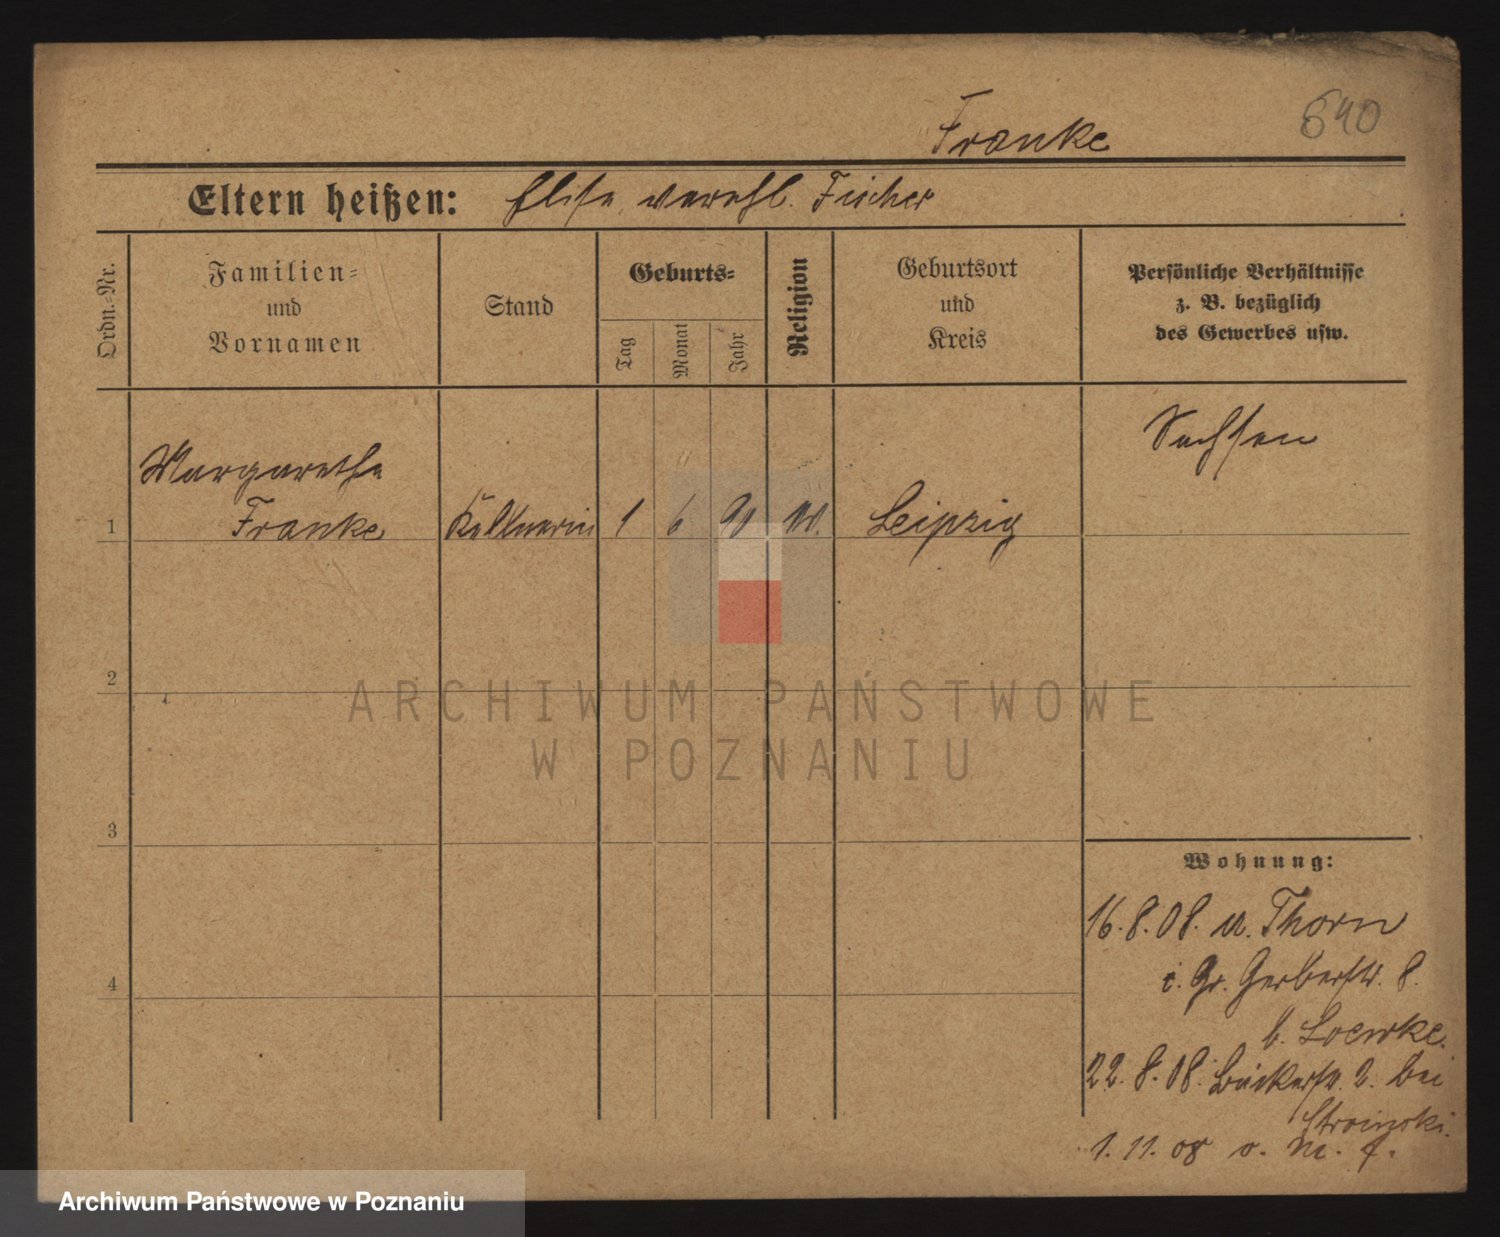 Franke
640
Eltern heißen: Elise, verehl. Fischer
Ordn.=Nr.
Familien=
und
Vornamen
Stand
Geburts=
Tag
Monat
Jahr
Religion
Geburtsort
und
Kreis
Persönliche Verhältnisse
z. B. bezüglich
des Gewerbes usw.
Sachsen
Margarethe
1 Franke Kellnerin 1 6 90 Leipzig
2
3
4
Wohnung:
16.8.08. a. Thorn
i. Gr. Gerberstr. 8.
b. Loewke.
22.8.08. Bäckerstr. 2. bei
Stroinski.
1. 11. 08
ARCHIWUM PAŃSTWOWE
W POZNANIU
Archiwum Państwowe w Poznaniu